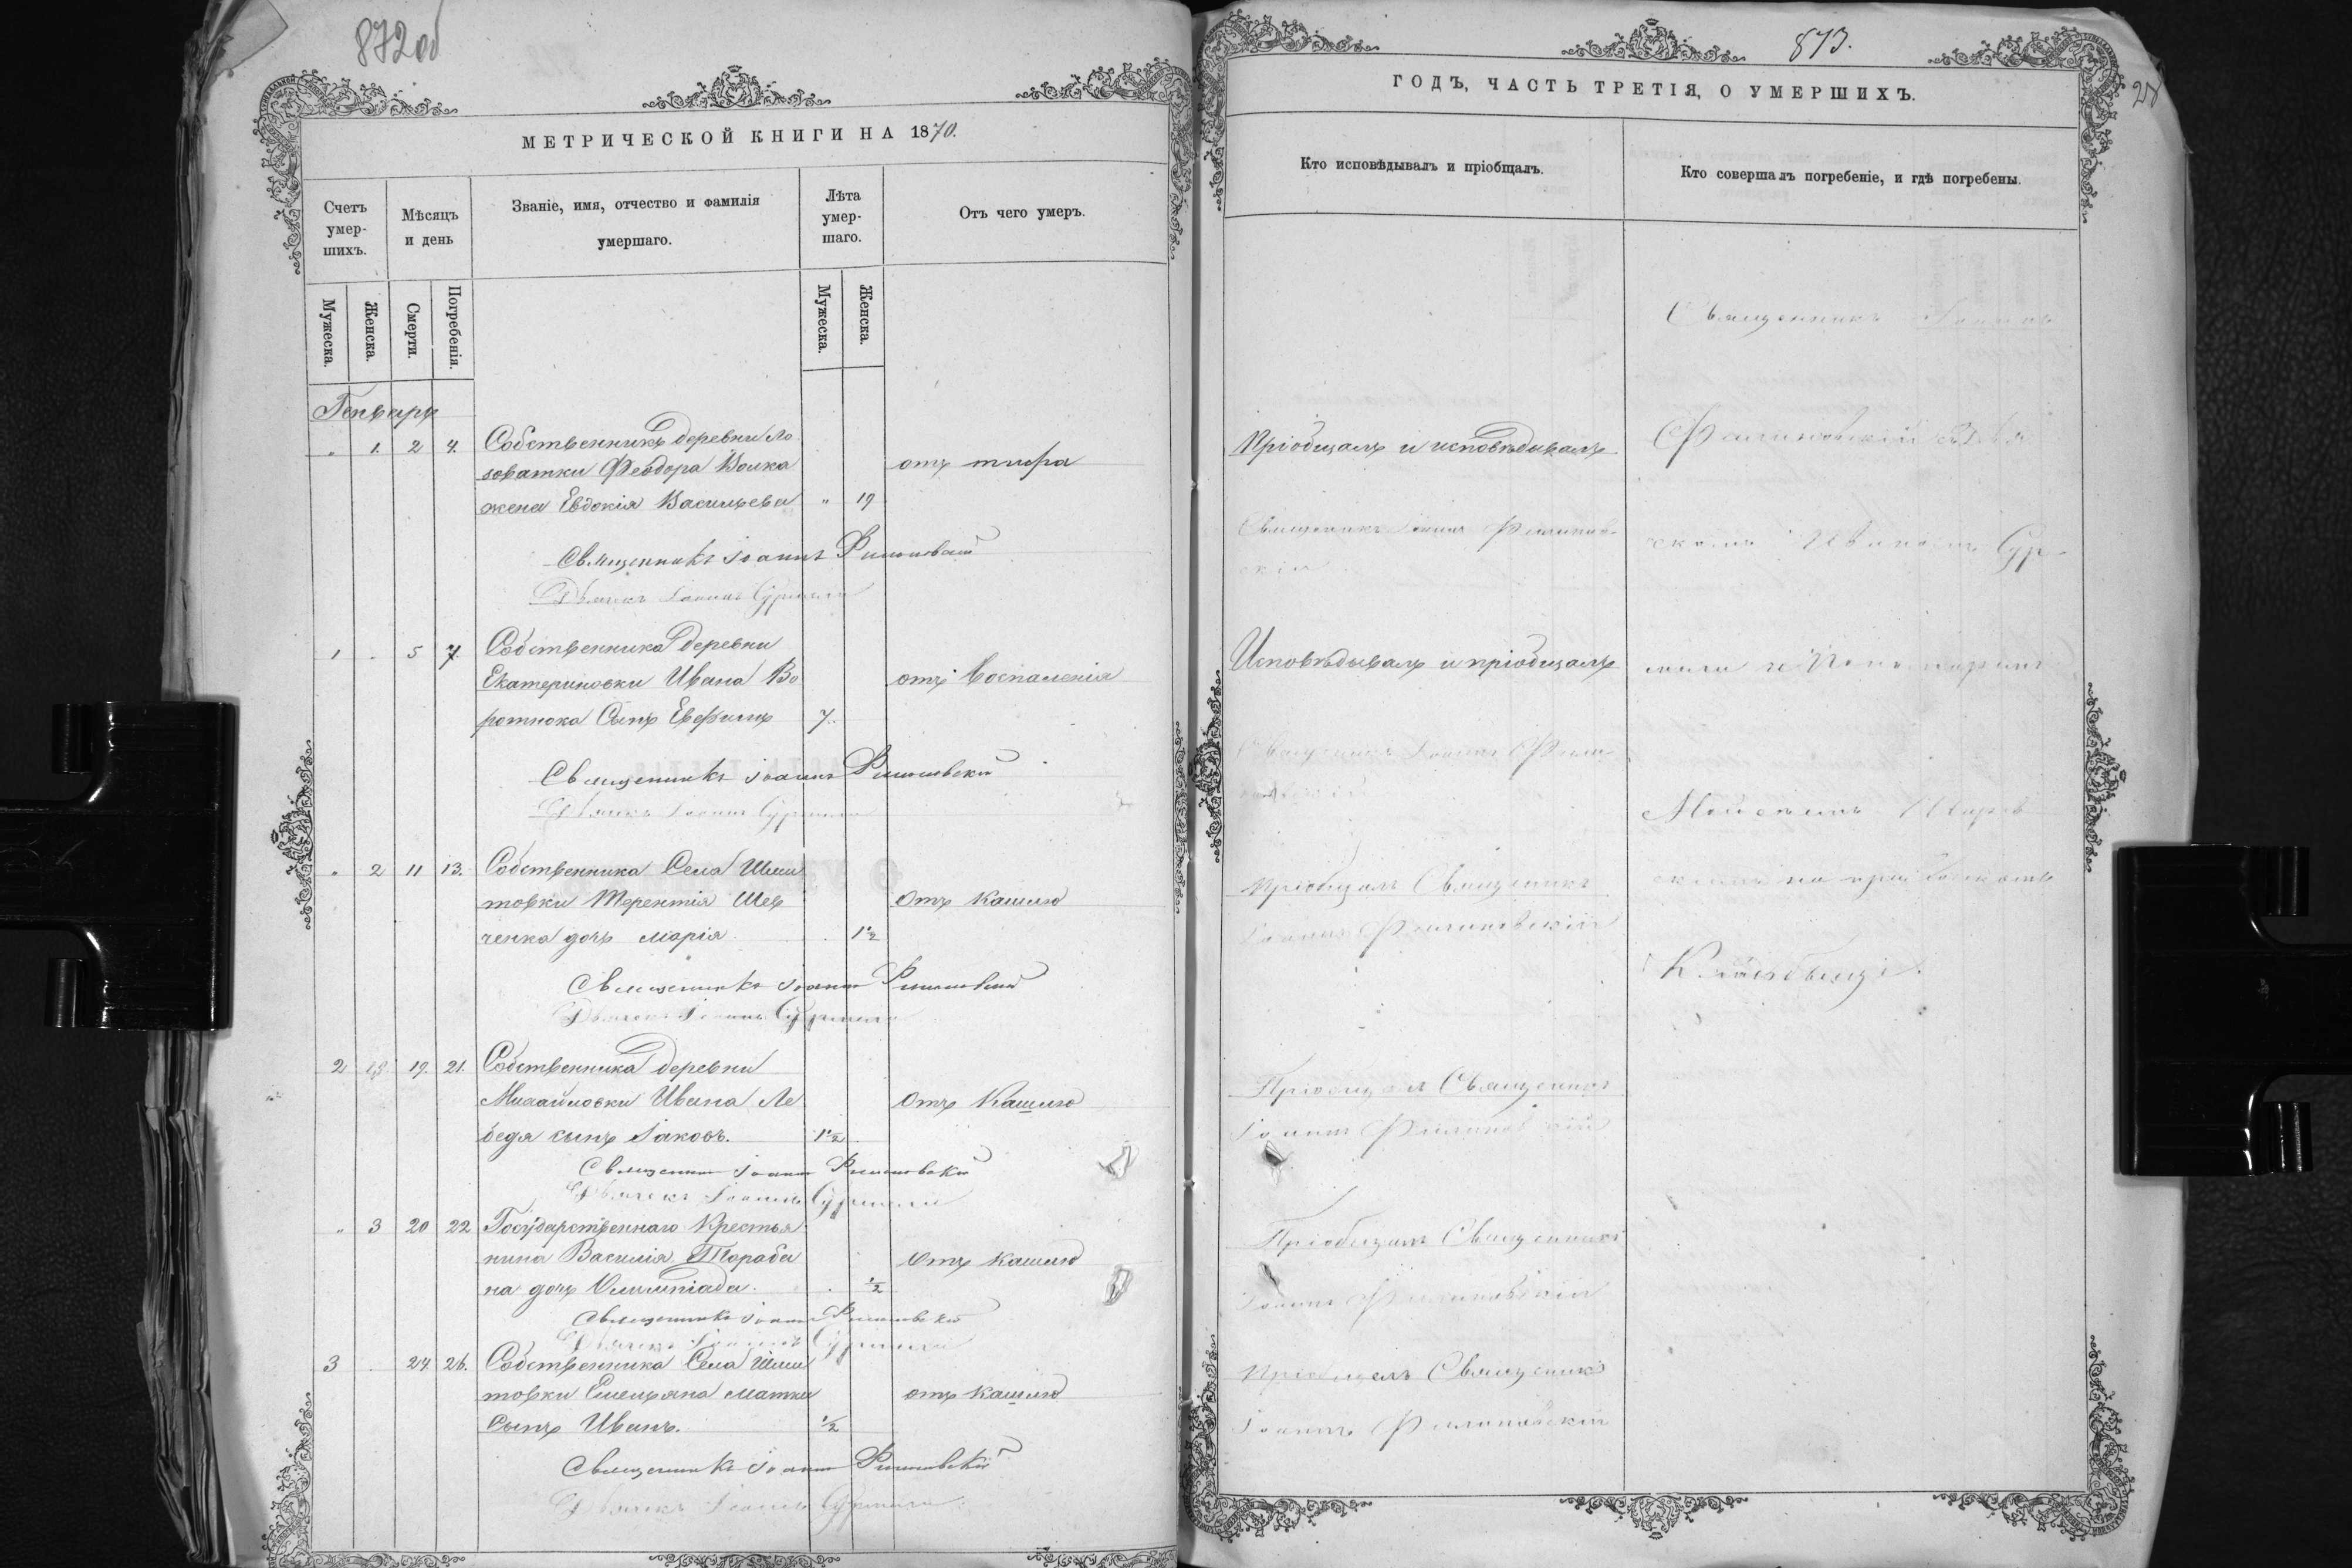 872об
МЕТРИЧЕСКОЙ КНИГИ НА 1870.
Счетъ умер-шихъ.
Мѣсяцъ и день
Званіе, имя, отчество и фамилія умершаго.
Лѣта умер-шаго.
Отъ чего умеръ.
Мужеска.
Женска.
Смерти.
Погребенія.
Мужеска.
Женска.
Генварь
" 1. 2 4. Собственникъ деревни Ло
зоватки Феодора Волка отъ тифа
жена Евдокія Васильева " 19
Священникъ Іоаннъ Филиповскій
Дьячекъ Іоаннъ
1 . 5 7. Собственника деревни
Екатериновки Ивана Во отъ воспаленія
ротнюка Сынъ Евфимъ 7.
Священникъ Іоаннъ Филиповскій
Дьячекъ Іоаннъ
" 2 11 13. Собственника Села Шпи
товки Терентія Шев Отъ кашлю
ченка дочь Марія . 1½
Священникъ Іоаннъ Филиповскій
Дьячекъ Іоаннъ
2 19. 21. Собственника деревни
Михайловки Ивана Ле Отъ Кашлю
бедя сынъ Іаковъ. 1½
Священник Іоанн Филиповскій
Дьячекъ Іоаннъ
" 3 20 22 Государственнаго Крестья
нина Василія Тараба Отъ кашлю
на дочь Олимпіада. . ½
Священникъ Іоанн Филиповскій
Дьячекъ Іоаннъ
3 . 24. 26. Собственника Села Шпи
товки Емельяна Матки отъ кашлю
Сынъ Иванъ. ½
Священникъ Іоанн Филиповскій
Дьячекъ Іоаннъ
873.
ГОДЪ, ЧАСТЬ ТРЕТІЯ, О УМЕРШИХЪ.
Кто исповѣдывалъ и пріобщалъ.
Кто совершалъ погребеніе, и гдѣ погребены.
Пріобщалъ и исповѣдывалъ
Священникъ Іоаннъ Филипов-
скій
Исповѣдывалъ и пріобщалъ
Священникъ Іоаннъ Фили-
повскій
Пріобщалъ Священникъ
Іоаннъ Филиповскій
Пріобщалъ Священникъ
Іоаннъ Филиповскій
Пріобщалъ Священникъ
Іоаннъ Филиповскій
Пріобщалъ Священникъ
Іоаннъ Филиповскій
Священникъ Іоаннъ
Филиповскій
на приходскомъ
Кладбищѣ.